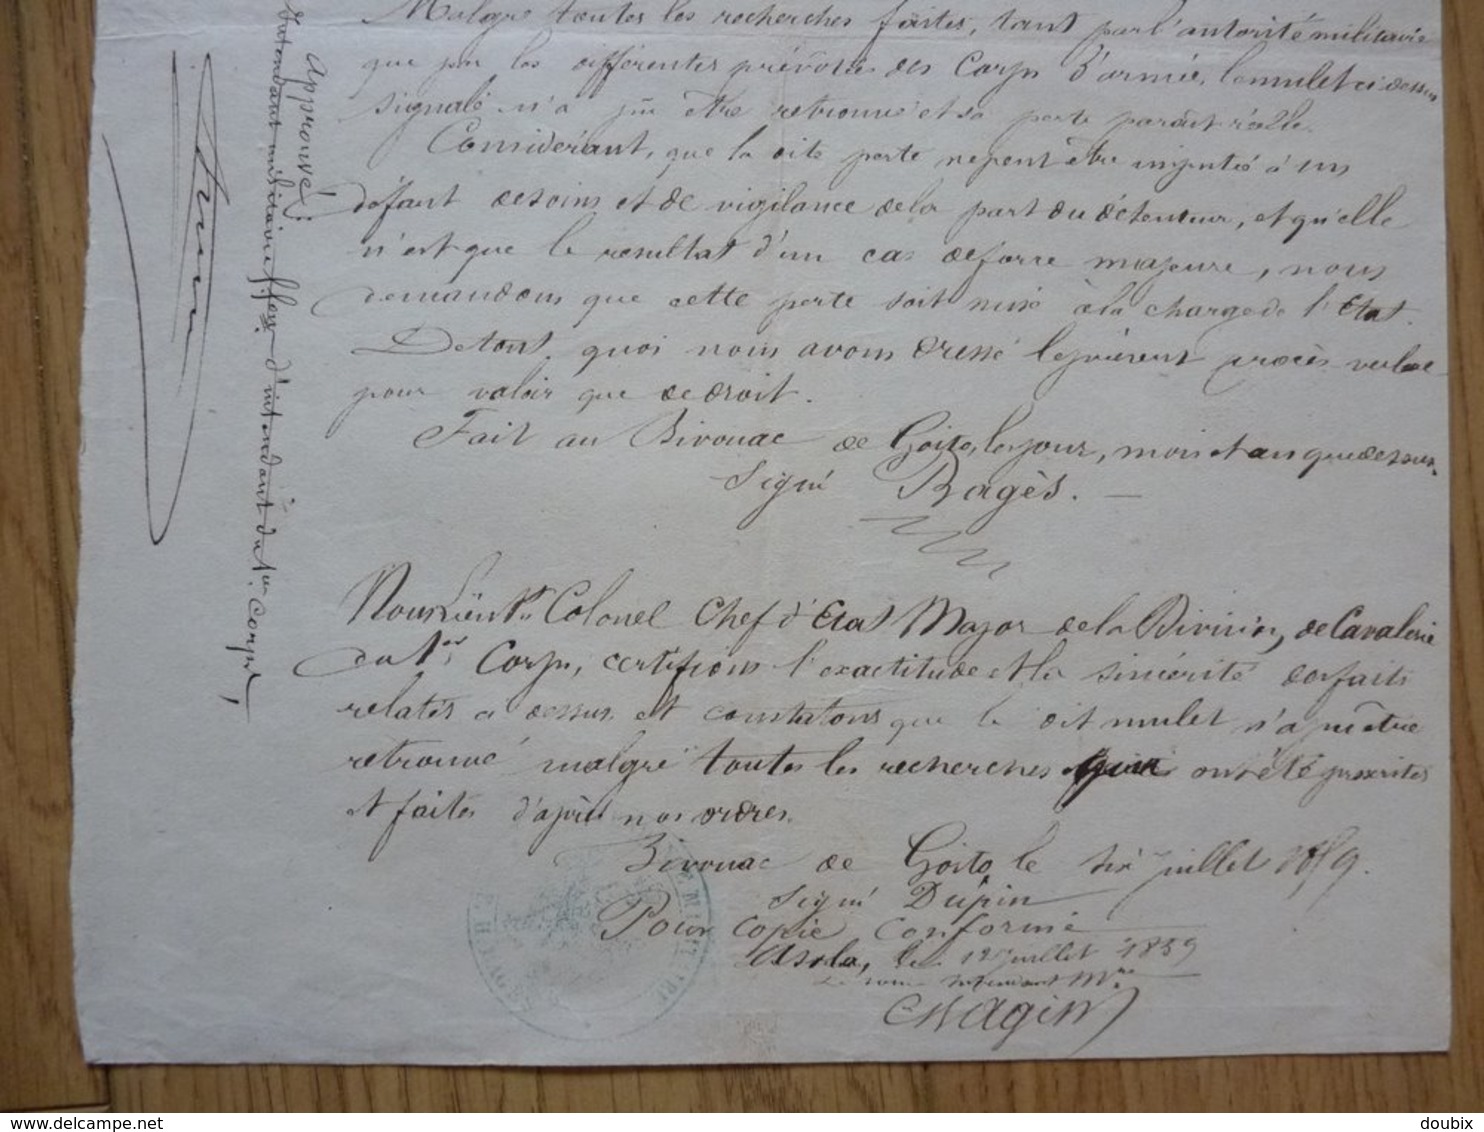 Malgré toutes les recherches faites, tant par l'autorité militaire
que par les différentes prévotés des Corps d'armée, le mulet ci dessus
signalé n'a pu être retrouvé et sa perte parait réelle.
Considérant, que la dite perte ne peut être imputée à un
défaut de soins et de vigilance de la part du détenteur, et qu'elle
n'est que le résultat d'un cas de force majeure, nous
demandons que cette perte soit mise à la charge de l'Etat.
De tout quoi nous avons dressé le présent procès verbal
pour valoir que de droit.
Fait au Bivouac de Goito, les jour, mois et an que dessus.
Signé Bagès.
Nous Lieut Colonel Chef d'Etat Major de la Division, de Cavalerie
du 1er Corps, certifions l'exactitude et la sincérité des faits
relatés ci dessus et constatons que le dit mulet n'a pu être
retrouvé malgré toutes les recherches qui ont été prescrites
et faites d'après nos ordres.
Bivouac de Goito le six juillet 1859.
Signé Dupin
Pour copie conforme
Asola, le 12 juillet 1859
Le sous Intendant Mre
Chagin
Approuvé:
intendant militaire ffons d'intendant du 1er corps,